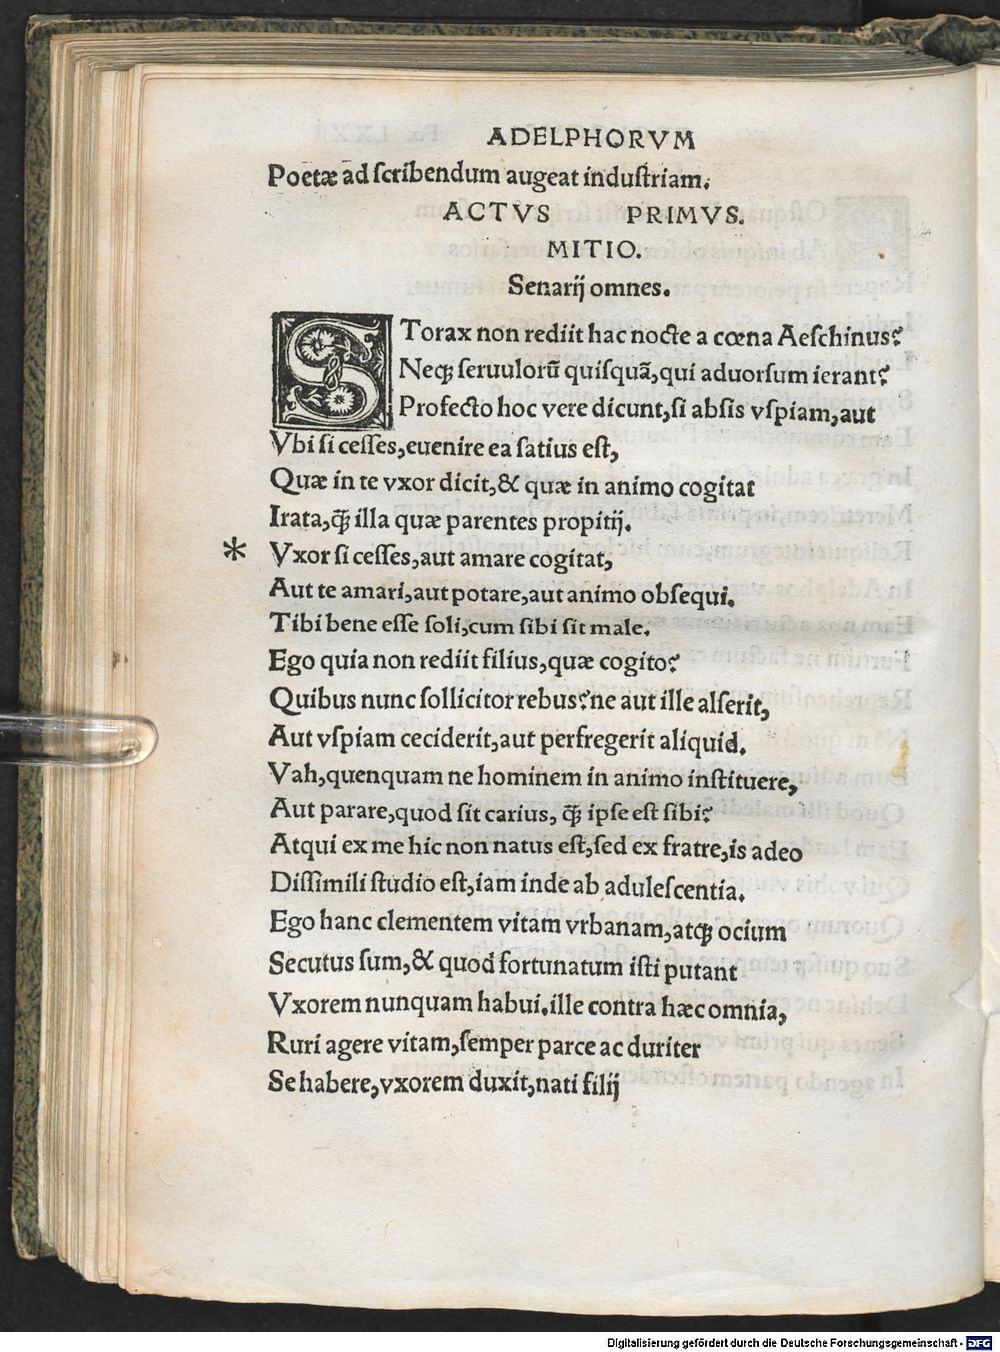 ADELPHORVM
Poetæ ad scribendum augeat industriam.
ACTVS PRIMVS.
MITIO.
Senarij omnes.
STorax non rediit hac nocte a cœna Aeschinus?
Neqꝫ seruulorū quisquā, qui aduorsum ierant?
Profecto hoc vere dicunt, si absis vspiam, aut
Vbi si cesses, euenire ea satius est,
Quæ in te vxor dicit, & quæ in animo cogitat
Irata, q̃ꝫ illa quæ parentes propitij.
* Vxor si cesses, aut amare cogitat,
Aut te amari, aut potare, aut animo obsequi.
Tibi bene esse soli, cum sibi sit male.
Ego quia non rediit filius, quæ cogito?
Quibus nunc sollicitor rebus? ne aut ille alserit,
Aut vspiam ceciderit, aut perfregerit aliquid.
Vah, quenquam ne hominem in animo instituere,
Aut parare, quod sit carius, q̃ꝫ ipse est sibi?
Atqui ex me hic non natus est, sed ex fratre, is adeo
Dissimili studio est, iam inde ab adulescentia.
Ego hanc clementem vitam vrbanam, atqꝫ ocium
Secutus sum, & quod fortunatum isti putant
Vxorem nunquam habui. ille contra hæc omnia,
Ruri agere vitam, semper parce ac duriter
Se habere, vxorem duxit, nati filij
Digitalisierung gefördert durch die Deutsche Forschungsgemeinschaft - DFG